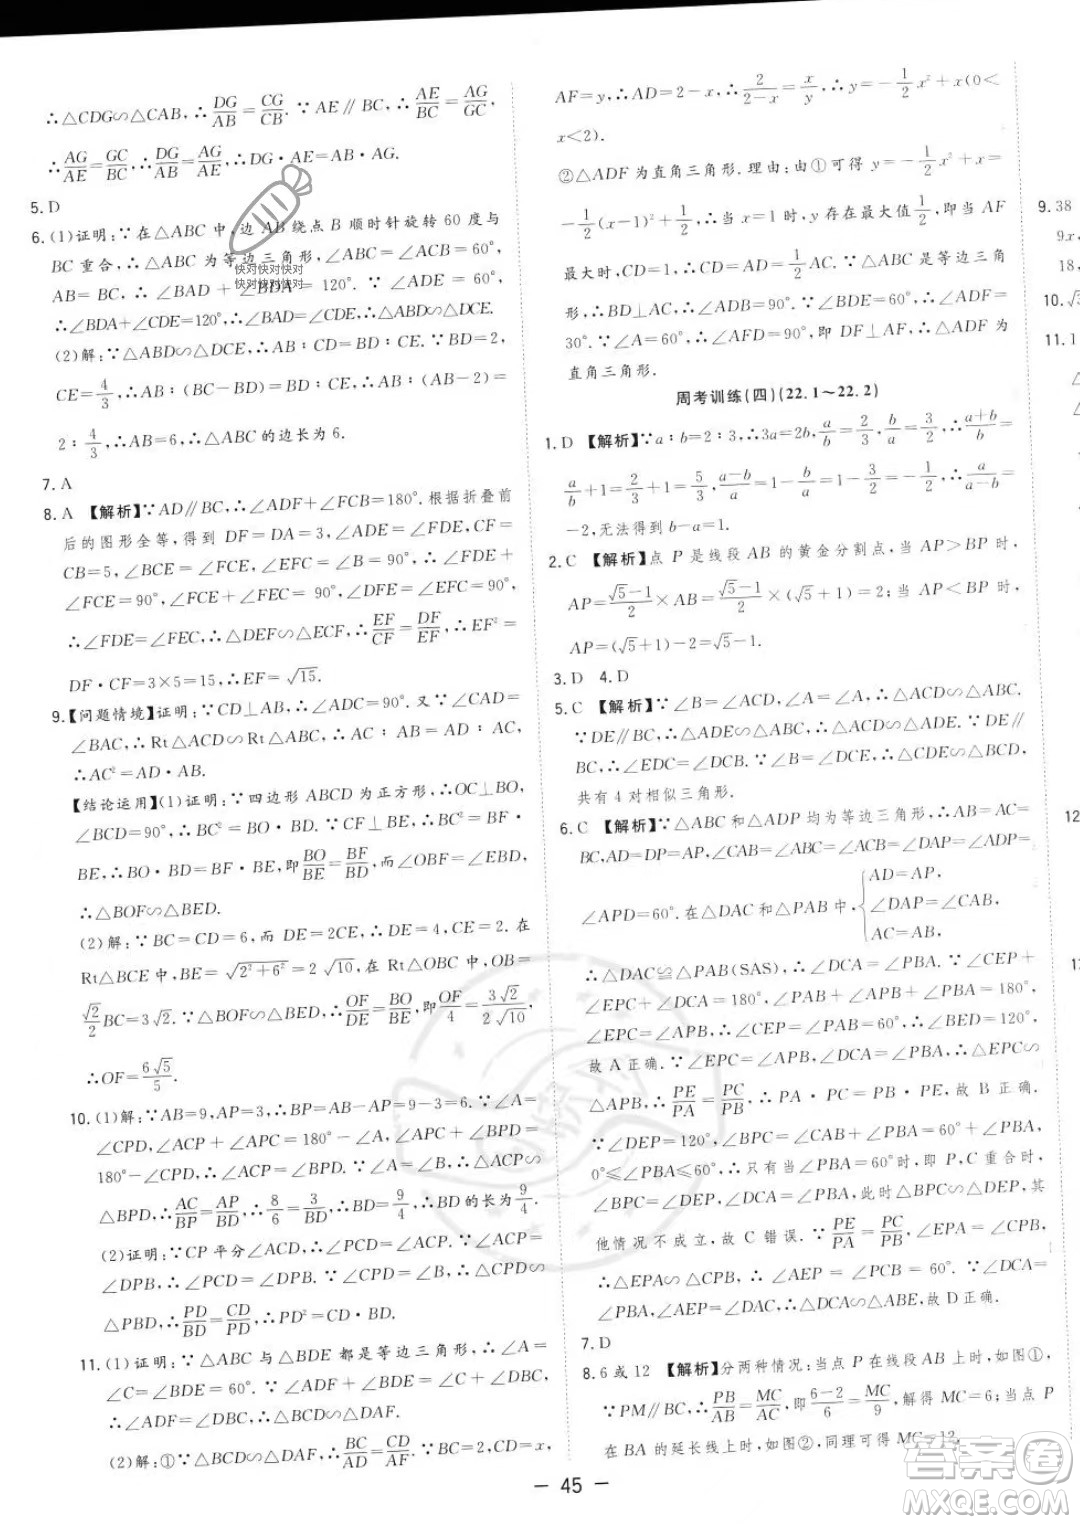 ∴△CDG∽△CAB,∴DG/AB=CG/CB.∵AE∥BC,∴AE/BC=AG/GC.
∴AG/AE=GC/BC,∴DG/AB=AG/AE,∴DG·AE=AB·AG.
5.D
6.(1)证明:∵在△ABC中,边AB绕点B顺时针旋转60度与
BC重合,∴△ABC为等边三角形,∴∠ABC=∠ACB=60°,
AB=BC,∴∠BAD+∠BDA=120°.∵∠ADE=60°,
∴∠BDA+∠CDE=120°,∴∠BAD=∠CDE,∴△ABD∽△DCE.
(2)解:∵△ABD∽△DCE,∴AB∶CD=BD∶CE.∵BD=2,
CE=4/3,∴AB∶(BC-BD)=BD∶CE,∴AB∶(AB-2)=
2∶4/3,∴AB=6,∴△ABC的边长为6.
7.A
8.A 【解析】∵AD∥BC,∴∠ADF+∠FCB=180°.根据折叠前
后的图形全等,得到DF=DA=3,∠ADE=∠FDE,CF=
CB=5,∠BCE=∠FCE,∠CFE=∠B=90°,∴∠FDE+
∠FCE=90°,∠FCE+∠FEC=90°,∠DFE=∠EFC=90°,
∴∠FDE=∠FEC,∴△DEF∽△ECF,∴EF/CF=DF/EF,∴EF²=
DF·CF=3×5=15,∴EF=√15.
9.【问题情境】证明:∵CD⊥AB,∴∠ADC=90°.又∵∠CAD=
∠BAC,∴Rt△ACD∽Rt△ABC,∴AC∶AB=AD∶AC,
∴AC²=AD·AB.
【结论运用】(1)证明:∵四边形ABCD为正方形,∴OC⊥BO,
∠BCD=90°,∴BC²=BO·BD.∵CF⊥BE,∴BC²=BF·
BE,∴BO·BD=BF·BE,即BO/BE=BF/BD,而∠OBF=∠EBD,
∴△BOF∽△BED.
(2)解:∵BC=CD=6,而DE=2CE,∴DE=4,CE=2.在
Rt△BCE中,BE=√(2²+6²)=2√10,在Rt△OBC中,OB=
√2/2BC=3√2.∵△BOF∽△BED,∴OF/DE=BO/BE,即OF/4=3√2/2√10,
∴OF=6√5/5.
10.(1)解:∵AB=9,AP=3,∴BP=AB-AP=9-3=6.∵∠A=
∠CPD,∠ACP+∠APC=180°-∠A,∠APC+∠BPD=
180°-∠CPD,∴∠ACP=∠BPD.∵∠A=∠B,∴△ACP∽
△BPD,∴AC/BP=AP/BD,∴8/6=3/BD,∴BD=9/4,∴BD的长为9/4.
(2)证明:∵CP平分∠ACD,∴∠PCD=∠ACP.∵∠ACP=
∠DPB,∴∠PCD=∠DPB.∵∠CPD=∠B,∴△CDP∽
△PBD,∴PD/BD=CD/PD,∴PD²=CD·BD.
11.(1)证明:∵△ABC与△BDE都是等边三角形,∴∠A=
∠C=∠BDE=60°.∵∠ADF+∠BDE=∠C+∠DBC,
∴∠ADF=∠DBC,∴△CDB∽△DAF.
(2)解:①∵△CDB∽△DAF,∴BC/AD=CD/AF.∵BC=2,CD=x,
AF=y,∴AD=2-x,∴2/(2-x)=x/y,∴y=-1/2x²+x(0<
x<2).
②△ADF为直角三角形.理由:由①可得y=-1/2x²+x=
-1/2(x-1)²+1/2,∴当x=1时,y存在最大值1/2,即当AF
最大时,CD=1,∴CD=AD=1/2AC.∵△ABC是等边三角
形,∴BD⊥AC,∴∠BDA=90°.∵∠BDE=60°,∴∠ADF=
30°.∵∠A=60°,∴∠AFD=90°,即DF⊥AF,∴△ADF为
直角三角形.
周考训练(四)(22.1～22.2)
1.D 【解析】∵a∶b=2∶3,∴3a=2b,a/b=2/3,b/a=3/2,∴(a+b)/b=
a/b+1=2/3+1=5/3,(a-b)/a=1-b/a=1-3/2=-1/2,∴a/(a-b)=
-2,无法得到b-a=1.
2.C 【解析】点P是线段AB的黄金分割点,当AP>BP时,
AP=(√5-1)/2×AB=(√5-1)/2×(√5+1)=2;当AP<BP时,
AP=(√5+1)-2=√5-1.
3.D 4.D
5.C 【解析】∵∠B=∠ACD,∠A=∠A,∴△ACD∽△ABC.
∵DE∥BC,∴△ADE∽△ABC,∴△ACD∽△ADE.∵DE∥
BC,∴∠EDC=∠DCB.∵∠B=∠DCE,∴△CDE∽△BCD,
共有4对相似三角形.
6.C 【解析】∵△ABC和△ADP均为等边三角形,∴AB=AC=
BC,AD=DP=AP,∠CAB=∠ABC=∠ACB=∠DAP=∠ADP=
∠APD=60°.在△DAC和△PAB中,{AD=AP,
∠DAP=∠CAB,
AC=AB,
∴△DAC≌△PAB(SAS),∴∠DCA=∠PBA.∵∠CEP+
∠EPC+∠DCA=180°,∠PAB+∠APB+∠PBA=180°,
∠EPC=∠APB,∴∠CEP=∠PAB=60°,∴∠BED=120°.
故A正确.∵∠EPC=∠APB,∠DCA=∠PBA,∴△EPC∽
△APB,∴PE/PA=PC/PB,∴PE·PB=PC·PA,故B正确.
∵∠DEP=120°,∠BPC=∠CAB+∠PBA=60°+∠PBA,
0°≤∠PBA≤60°,∴只有当∠PBA=60°时,即P,C重合时,
∠BPC=∠DEP,∠EDA=∠PBA,此时△ABP∽△DEP,其
他情况不成立,故C错误.∵PE/PA=PC/PB,∠EPA=∠CPB,
∴△EPA∽△CPB,∴∠AEP=∠PCB=60°.∵∠DCA=
∠PBA,∠AEP=∠DAC,∴△DAC∽△AEB,故D正确.
7.D
8.6或12 【解析】分两种情况:当点P在线段AB上时,如图①,
∵PM∥BC,∴PB/AB=MC/AC,即(6-2)/6=MC/9,解得MC=6;当点P
在BA的延长线上时,如图②,同理可得MC=12.
9.38
9x
18,
10.√5
11.1
12
13
快对快对快对
快对快对快对
答案圈
MXQE.COM
- 45 -